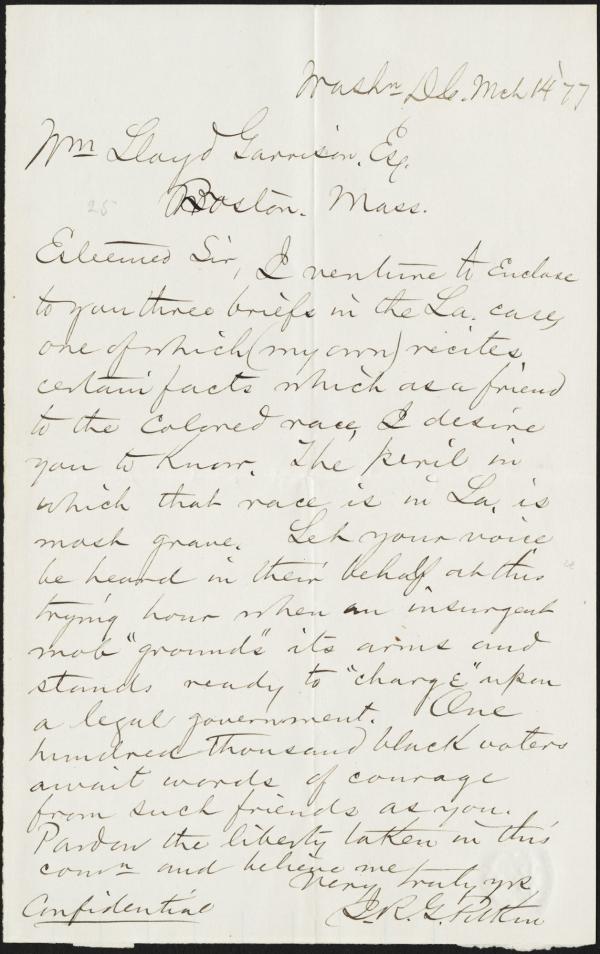 Washn DC. Mch 14 '77
Wm Lloyd Garrison, Esq.
Boston. Mass.
25
Esteemed Sir, I venture to enclose
to you three briefs in the La. case,
one of which (my own) recites
certain facts which as a friend
to the Colored race, I desire
you to know. The peril in
which that race is in La. is
most grave. Let your voice
be heard in their behalf at this
trying hour when an insurgent
mob "grounds" its arms and
stands ready to "charge" upon
a legal government. One
hundred thousand black voters
await words of courage
from such friends as you.
Pardon the liberty taken in this
comn and believe me
Very truly yrs
Confidential
J. R. G. Pitkin